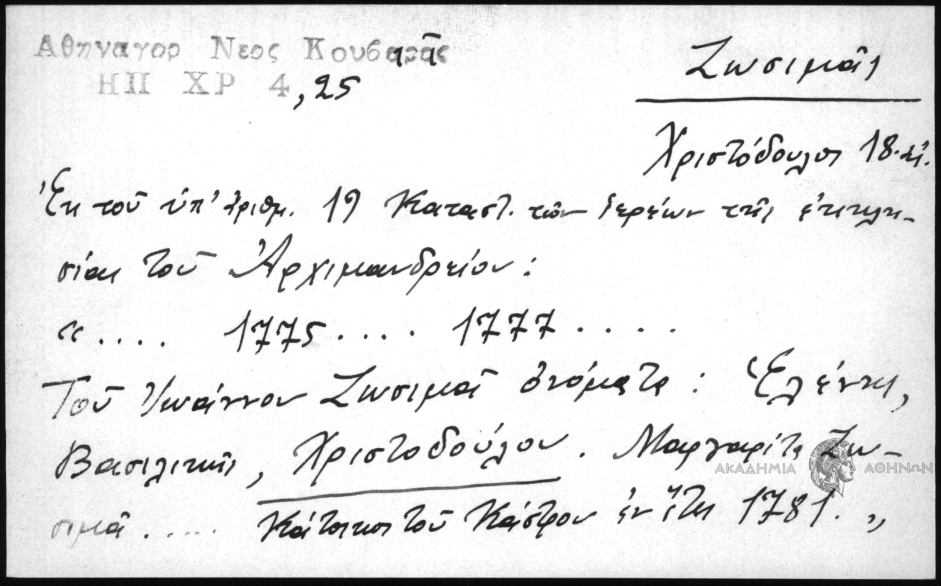 Αθηναγορ Νεος Κουβαρᾶς
ΗΠ ΧΡ 4, 25
Ζωσιμᾶς
Χριστόδουλος 18. αἰ.
Ἐκ τοῦ ὑπ' ἀριθμ. 19 Καταστ. τῶν ἱερέων τῆς ἐκκλη-
σίας τοῦ Ἀρχιμανδρείου:
«.... 1775.... 1777.....
Τοῦ Ἰωάννου Ζωσιμᾶ ὀνόματα: Ἑλένης,
Βασιλικῆς, Χριστοδούλου. Μαργαρίτη Ζω-
σιμᾶ..... Κάτοικοι τοῦ Κάστρου ἐν ἔτει 1781.»
ΑΚΑΔΗΜΙΑ ΑΘΗΝΩΝ